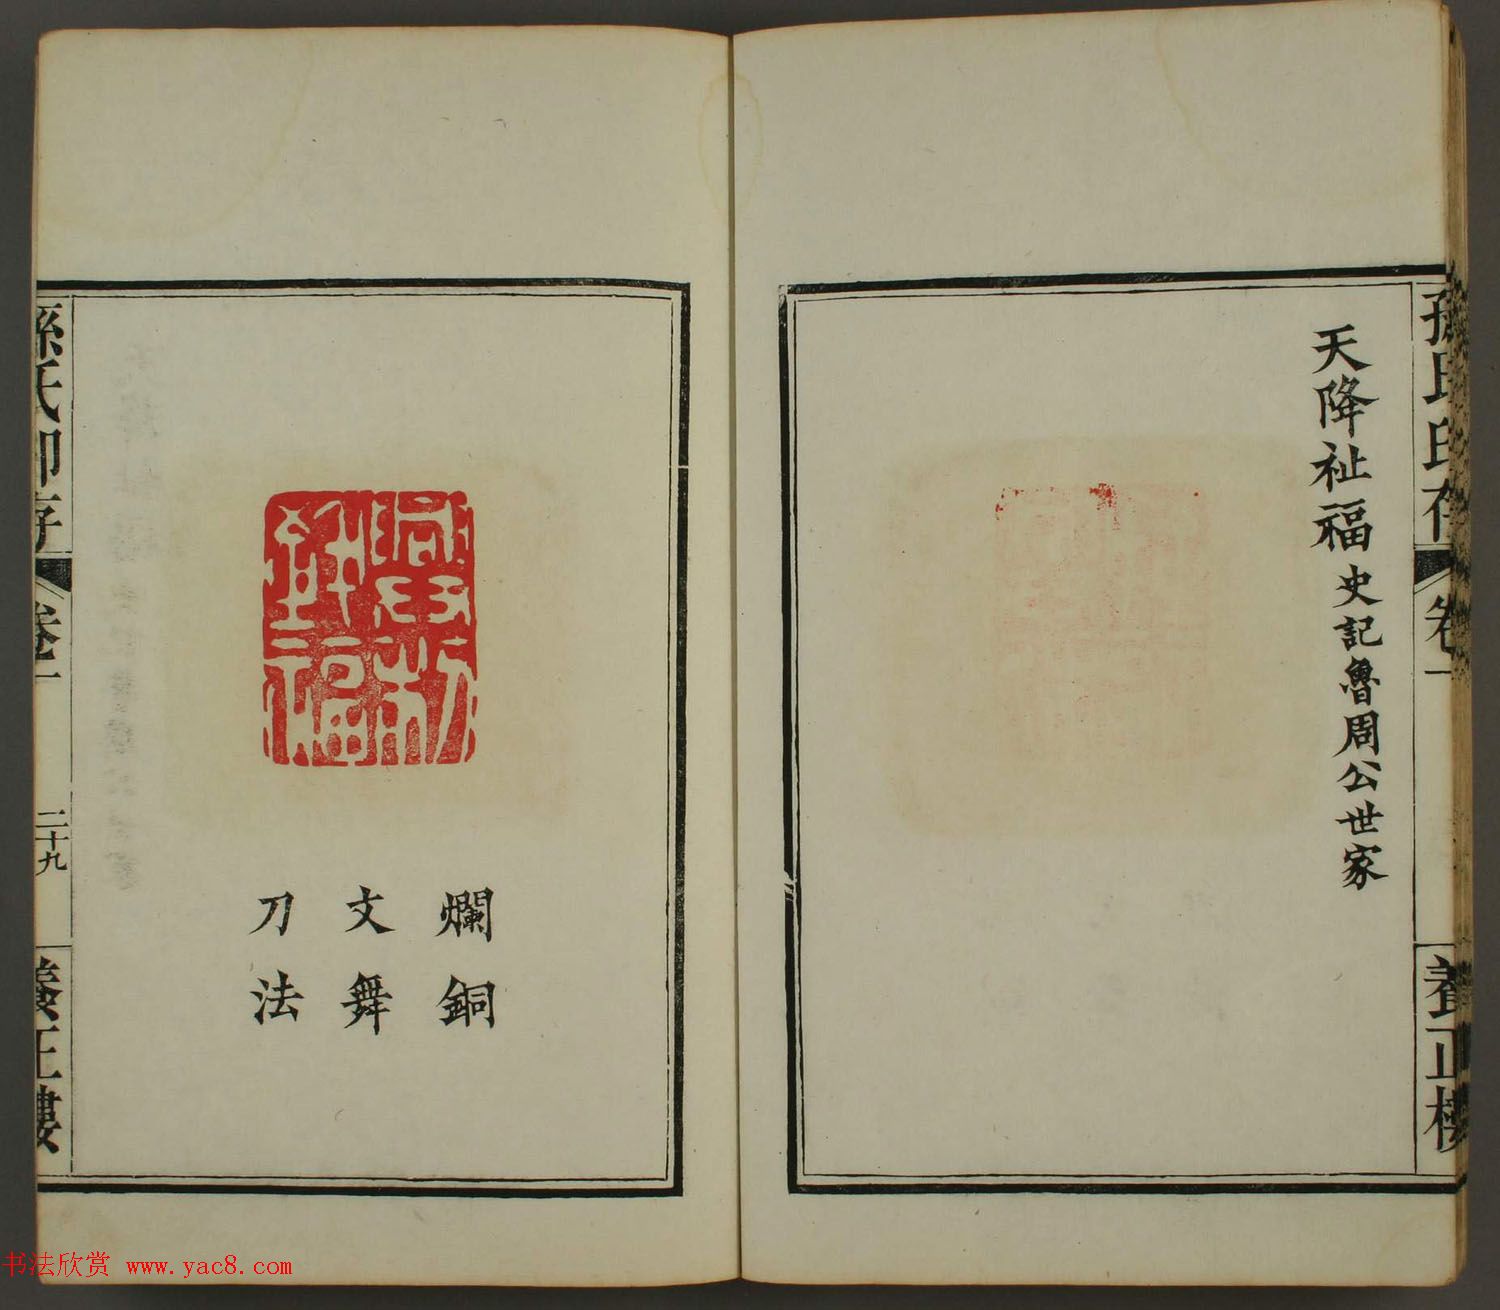 孫氏印存
卷一
養正樓
天降祉福 史記魯周公世家
爛銅
文舞
刀法
孫氏印存
卷一
二十九
養正樓
书法欣赏 www.yac8.com